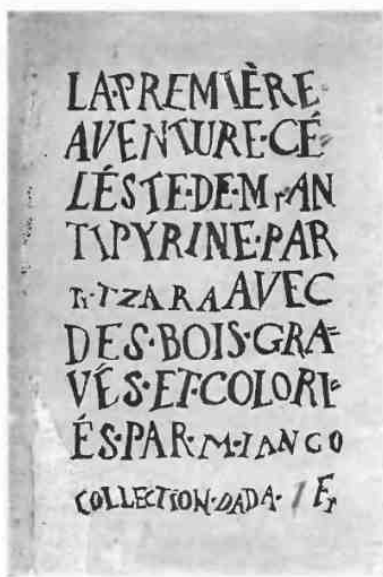 LA·PREMIÈRE·
AVENTURE·CÉ=
LÉSTE·DE·Mr·AN
TIPYRINE·PAR
TR·TZARA AVEC
DES·BOIS·GRA=
VÉS·ET·COLORI=
ÉS·PAR·M·IANCO
COLLECTION·DADA· / Fr